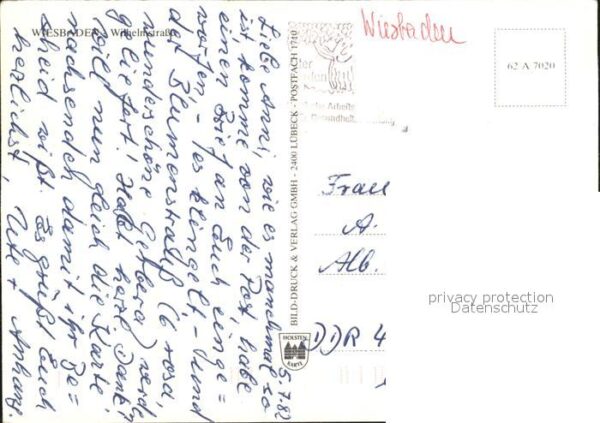 WIESBADEN - Wilhelmstraße
Liebe Anni, wie es manchmal so
ist komme von der Post, habe
einen Brief an Euch einge=
worfen - es klingelt - und
der Blumenstrauß (6 rosa,
wunderschöne Gerbera) wird
geliefert! Habt herzl. Dank!
will nun gleich die Karte
nachsenden damit ihr Be=
scheid wißt. Es grüßt Euch
herzlichst, Ute + Anhang.
5.7.82
BILD-DRUCK & VERLAG GMBH - 2400 LÜBECK - POSTFACH 1710
HOLSTEN
KARTE
Wiesbaden
62 A 7020
Frau
A.
Alb.
DDR 4
privacy protection
Datenschutz